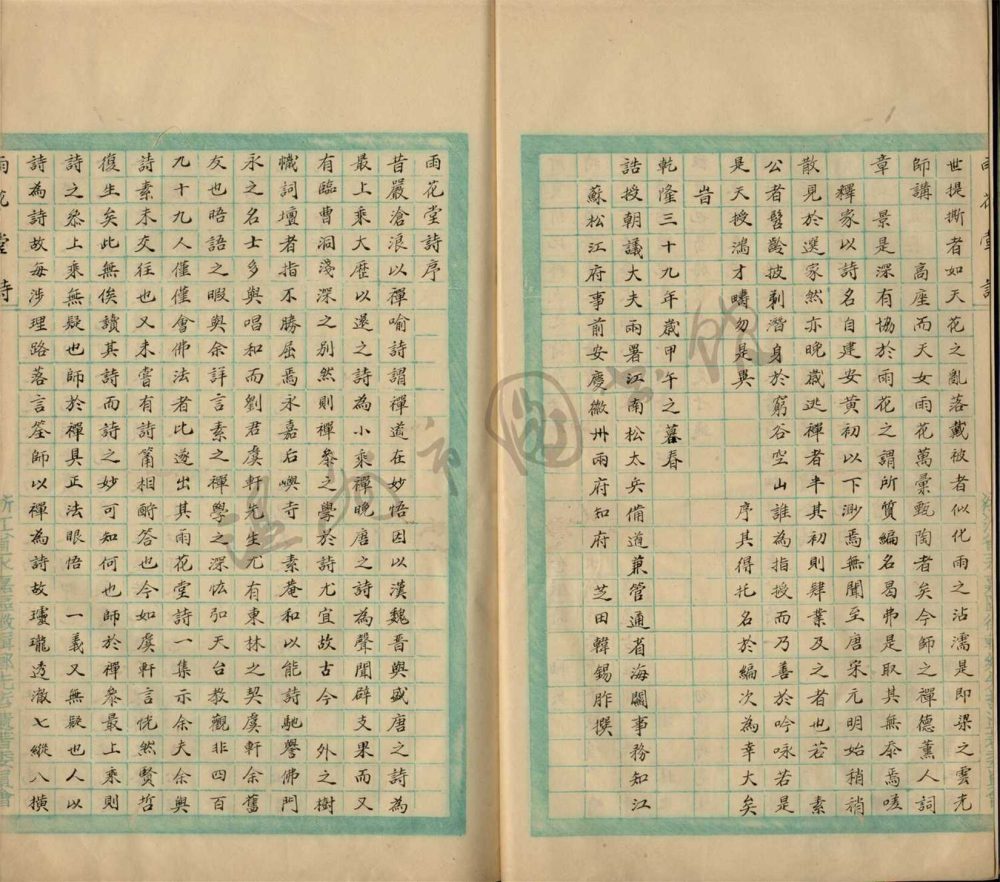 世提撕者如天花之亂落戴被者似化雨之沾濡是即梁之雲光
師講　高座而天女雨花萬彙甄陶者矣今師之禪德薰人詞
章　景是深有協於雨花之謂所質編名曷弗是取其無忝焉嗟
釋家以詩名自建安黃初以下渺焉無聞至唐宋元明始稍稍
散見於選家然亦晚歲逃禪者半其初則肆業及之者也若　素
公者髫齡披剃潛身於窮谷空山誰為指授而乃善於吟咏若是
是天授鴻才疇勿是與　　序其得托名於編次為幸大矣
旹
乾隆三十九年歲甲午之暮春
誥授朝議大夫兩署江南松太兵備道兼管通省海關事務知江
蘇松江府事前安慶徽州兩府知府　芝田韓錫胙撰
雨花堂詩序
昔嚴滄浪以禪喻詩謂禪道在妙悟因以漢魏晉與盛唐之詩為
最上乘大歷以還之詩為小乘禪晚唐之詩為聲聞辟支果而又
有臨曹洞淺深之别然則禪叅之學於詩尤宜故古今　外之樹
幟詞壇者指不勝屈焉永嘉石嶼寺　素菴和以能詩馳譽佛門
永之名士多與唱和而劉君虞軒先生尤有東林之契虞軒余舊
友也晤語之暇與余詳言素之禪學之深恢弘天台教觀非四百
九十九人僅僅會佛法者比遂出其雨花堂詩一集示余夫余與
詩素未交往也又未嘗有詩筩相酧答也今如虞軒言恍然賢哲
復生矣此無俟讀其詩而詩之妙可知何也師於禪叅最上乘則
詩之叅上乘無疑也師於禪具正法眼悟　一義又無疑也人以
詩為詩故每涉理路落言筌師以禪為詩故瓏瓏透澈七縱八橫
雨花堂詩